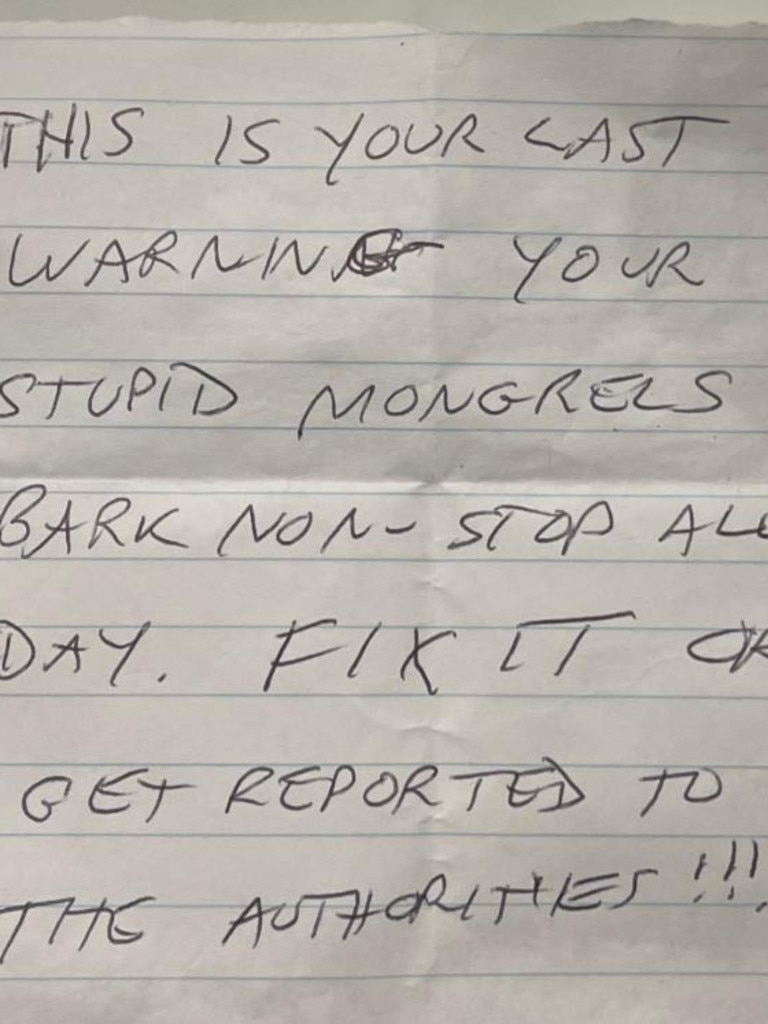 THIS IS YOUR LAST
WARNING YOUR
STUPID MONGRELS
BARK NON-STOP ALL
DAY. FIX IT OR
GET REPORTED TO
THE AUTHORITIES!!!